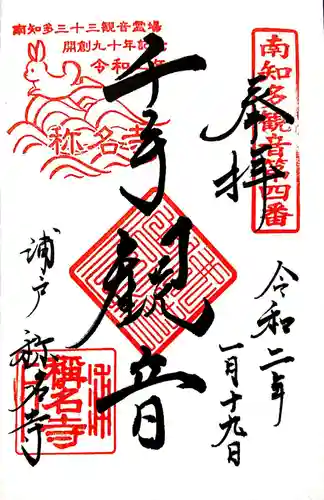 南知多観音第四番
奉拝
令和二年
一月十九日
南知多三十三観音霊場
開創九十年記念
令和二年
称名寺
千手観音
浦戸
称名寺
稱名寺